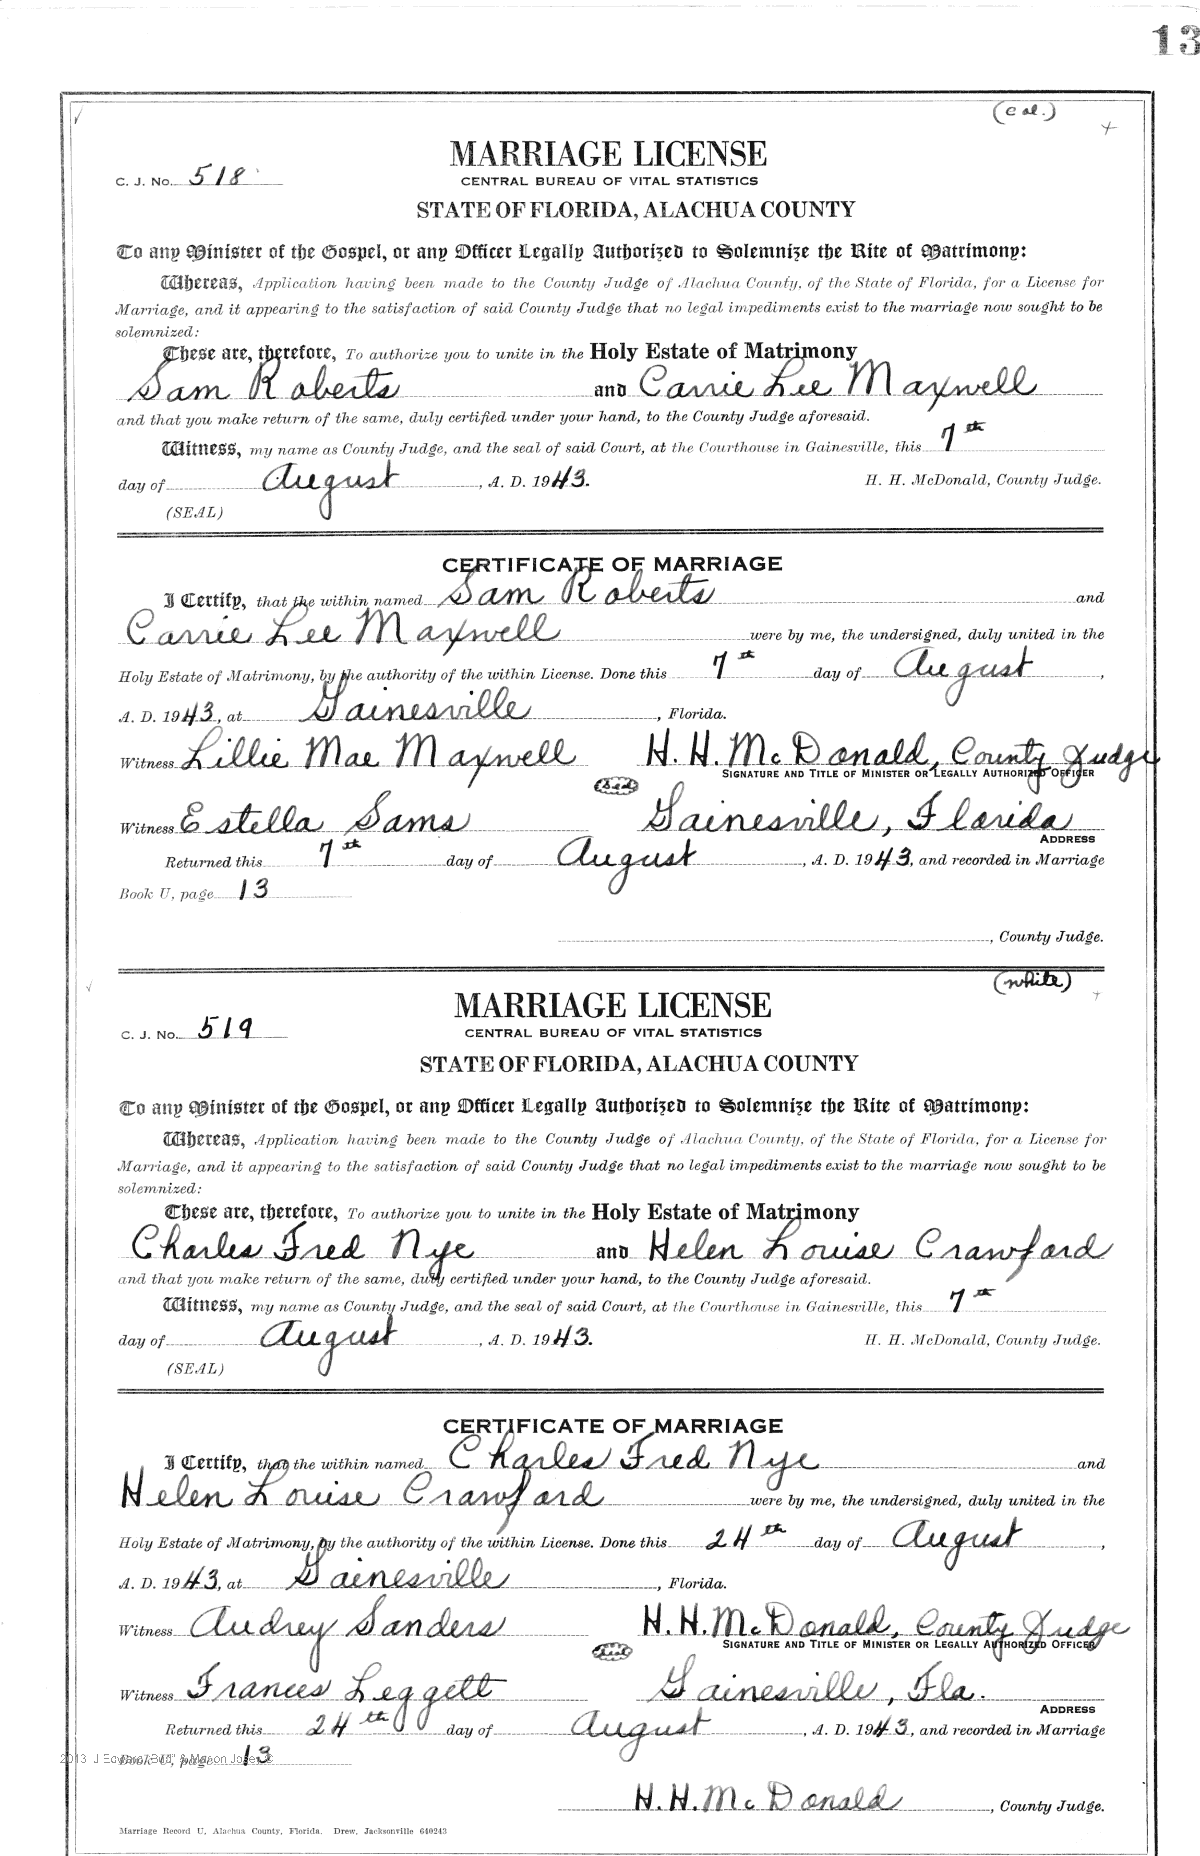 13
(Col.)
MARRIAGE LICENSE
C. J. No. 518
CENTRAL BUREAU OF VITAL STATISTICS
STATE OF FLORIDA, ALACHUA COUNTY
To any Minister of the Gospel, or any Officer Legally Authorized to Solemnize the Rite of Matrimony:
Whereas, Application having been made to the County Judge of Alachua County, of the State of Florida, for a License for
Marriage, and it appearing to the satisfaction of said County Judge that no legal impediments exist to the marriage now sought to be
solemnized:
These are, therefore, To authorize you to unite in the Holy Estate of Matrimony
Sam Roberts and Carrie Lee Maxwell
and that you make return of the same, duly certified under your hand, to the County Judge aforesaid.
Witness, my name as County Judge, and the seal of said Court, at the Courthouse in Gainesville, this 7th
day of August, A. D. 1943. H. H. McDonald, County Judge.
(SEAL)
CERTIFICATE OF MARRIAGE
I Certify, that the within named Sam Roberts and
Carrie Lee Maxwell were by me, the undersigned, duly united in the
Holy Estate of Matrimony, by the authority of the within License. Done this 7th day of August,
A. D. 1943, at Gainesville, Florida.
Witness Lillie Mae Maxwell H. H. McDonald, County Judge
SIGNATURE AND TITLE OF MINISTER OR LEGALLY AUTHORIZED OFFICER
(Seal)
Witness Estella Sams Gainesville, Florida
ADDRESS
Returned this 7th day of August, A. D. 1943, and recorded in Marriage
Book U, page 13
, County Judge.
(white)
MARRIAGE LICENSE
C. J. No. 519
CENTRAL BUREAU OF VITAL STATISTICS
STATE OF FLORIDA, ALACHUA COUNTY
To any Minister of the Gospel, or any Officer Legally Authorized to Solemnize the Rite of Matrimony:
Whereas, Application having been made to the County Judge of Alachua County, of the State of Florida, for a License for
Marriage, and it appearing to the satisfaction of said County Judge that no legal impediments exist to the marriage now sought to be
solemnized:
These are, therefore, To authorize you to unite in the Holy Estate of Matrimony
Charles Fred Nye and Helen Louise Crawford
and that you make return of the same, duly certified under your hand, to the County Judge aforesaid.
Witness, my name as County Judge, and the seal of said Court, at the Courthouse in Gainesville, this 7th
day of August, A. D. 1943. H. H. McDonald, County Judge.
(SEAL)
CERTIFICATE OF MARRIAGE
I Certify, that the within named Charles Fred Nye and
Helen Louise Crawford were by me, the undersigned, duly united in the
Holy Estate of Matrimony, by the authority of the within License. Done this 24th day of August,
A. D. 1943, at Gainesville, Florida.
Witness Audrey Sanders H. H. McDonald, County Judge
SIGNATURE AND TITLE OF MINISTER OR LEGALLY AUTHORIZED OFFICER
(Seal)
Witness Frances Leggett Gainesville, Fla.
ADDRESS
Returned this 24th day of August, A. D. 1943, and recorded in Marriage
Book U, page 13
2013 J Edward "Bud" &
H. H. McDonald, County Judge.
Marriage Record U, Alachua County, Florida. Drew, Jacksonville 640243